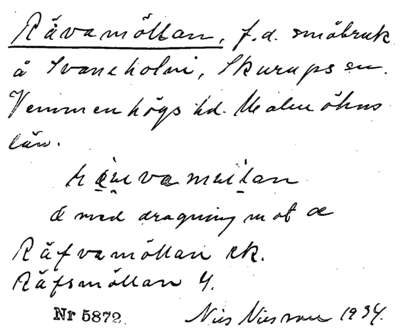 Rävamöllan, f.d. småbruk
å Svaneholm, Skurups sn.
Vemmenhögs hd. Malmöhus
län.
med dragning mot
Räfvamöllan ek.
Räfsmöllan 4.
Nr 5872 Nils Nilsson 1934.